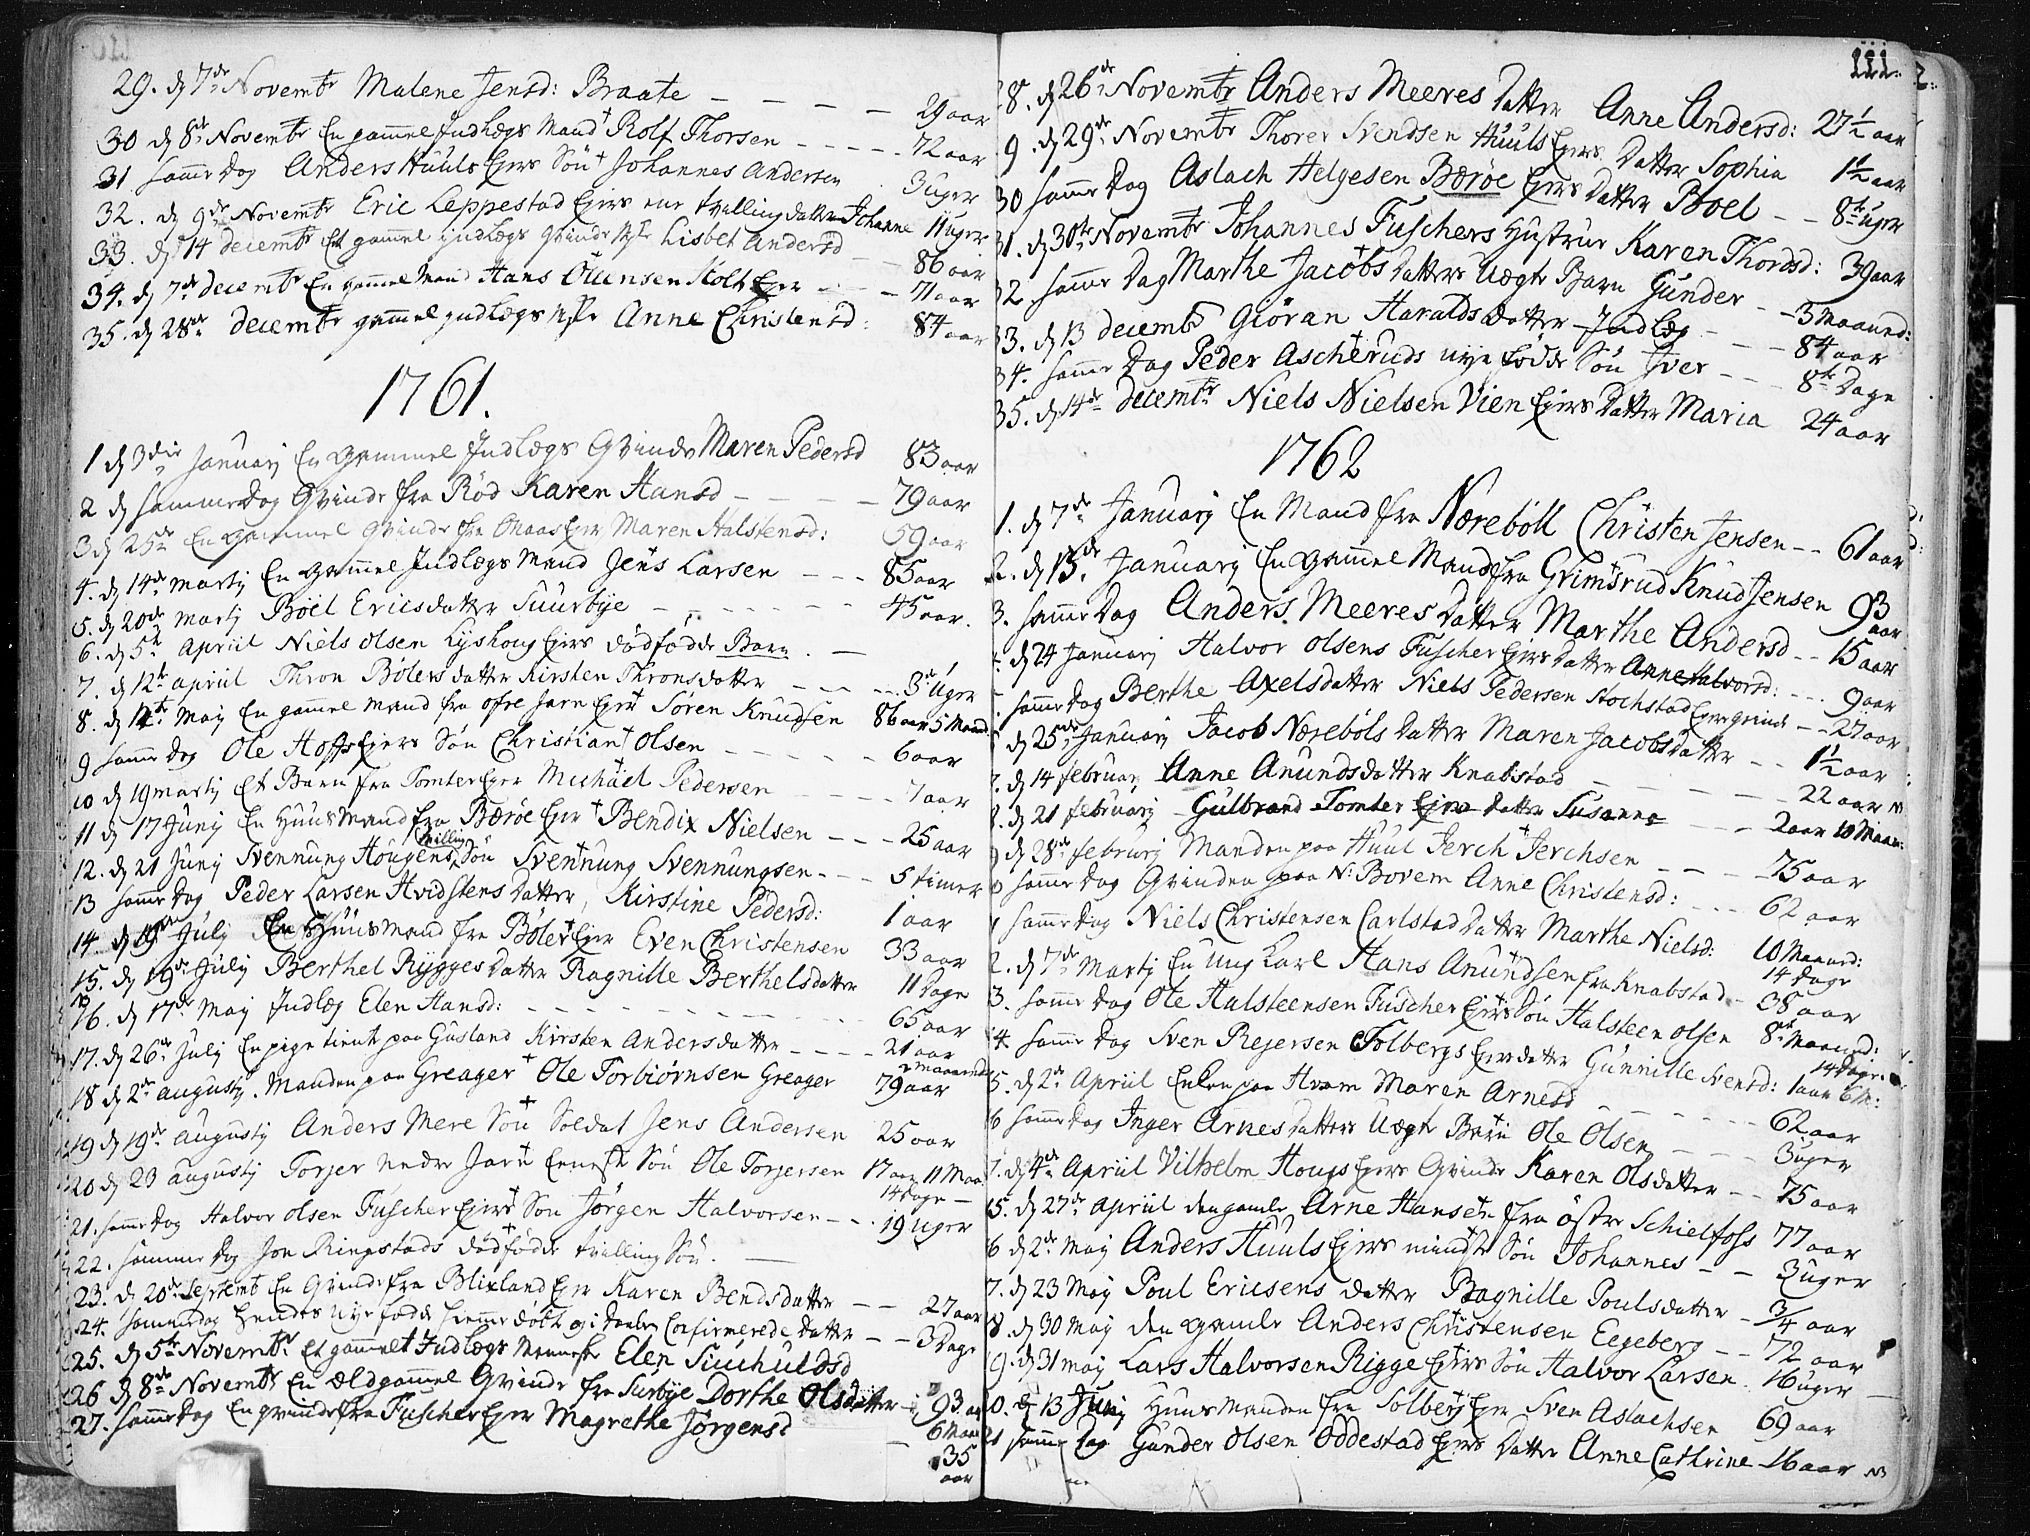 29. d 7de Novembr Malene Jensd: Braate - - - - 29 aar
30 d 8de Novembr En gammel Indlægs Mand Rolf Thorsen - - - - - 72 aar
31 samme Dag Anders Huuls Eiers Søn Johannes Andersen 3 uger
32. d 9de Novembr Eric Leppestad Eiers ene tvilling datter Johanne 11 uger
33. d 14 decembr Et gammel indlægs Qvinde Lisbet Andersd - - 86 aar
34. d 7de decembr En gammel Mand Hans Olensen Holt Eger - - - 71 aar
35. d 28de decembr gammel indlægs Anne Christensd: 84 aar
1761.
1 d 3die Januarij En Gammel Indlægs Qvinde Maren Pedersd 83 aar
2 d samme Dag Qvinde fra Rød Karen Hansd - - - - 79 aar
3 d 25de En Gammel Qvinde fra Onaas Eger Maren Halstensd: 59 aar
4. d 14de Martij En Gammel Indlægs Mand Jens Larsen - - - 85 aar
5. d 20de Martij Böel Ericsdatter Suurbye - - - - - - 45 aar.
6. d 5te Apriil Niels Olsen Lyshoug Eiers dödfødde Barn. -
7. d 12te apriil Thron Bölers datter Kirsten Thronsdatter - - - - 3de Uger
8. d 12te Maij En gammel Mand fra öfre Jarn Eger Søren Knudsen 86 aar 5 Maan
9 samme Dag Ole Hoffs Eiers Søn Christian Olsen - - - - - 6 aar
10 d 19 martij Et Barn fra Tomter Eger Michael Pedersen - - - - 7 aar
11 d 17 Junij En Huusmand fra Bærøe Eger Bendix Nielsen - - - 25 aar
12. d 21 Junij Svennung Hougens tvilling Søn Svennung Svennungsen - - - 5 timer
13 samme Dag Peder Larsen Hvidstens Datter, Kirstine Pedersd: 1 aar
14 d 19 Julij En Huusmand fra Böler Eger Even Christensen 33 aar
15. d 19de Julij Berthel Rygges Datter Ragnille Berthelsdatter 11 Dage
16. d 17de Maij Indlæg Elen Hansd: - - - - - - - - 65 aar
17. d 26de Julij En pige tient paa Gusland Kirsten Andersdatter - - - - 21 aar
18 d 2de augustij. Manden paa Greager Ole Torbiørnsen Greager 79 aar
19 d 19de augustij Anders Mere Søn Soldat Jens Andersen 25 aar
20 d 23 augustij Torjer neder Jarn Søn Ole Torjersen 17 aar 11 Maa
14 dage -
21. samme Dag Halvor Olsen Fuscher Eiers Søn Jørgen Halvorsen - - - 19 uger
22. samme Dag Jon Ringstads dødfødde tvilling Søn. -
23. d 20de Septemb En Qvinde fra Blixland Eger Karen Bendsdatter - - 27 aar
24. samme Dag hendes nye fødde hiemmedøbt og i Daaben Confirmerede datter - - 3 Dage
25. d 5te Novembr Et gammelt Indlægs Menneske Elen
26 d 8de Novembr En ældgammel Qvinde fra Surbye Dorthe Olsdatter - 93 aar
6 Maan
27. samme Dag En qvinde fra Fuscher Eger Magrethe Jørgensd - 35
aar
111.
28. d 26de Novembr Anders Meeres Datter Anne Andersd: 27 1/2 aar
9. d 29de Novembr Thorer Svendsen Huuls Eiers Datter Sophia 1 1/2 aar
30 samme Dag Aslach Helgesen Bærøe Eiers Datter Boel - - 8te Uger
31. d 30te Novembr Johannes Fuschers Hustrue Karen Thordsd: 39 aar
32. samme Dag Marthe Jacobs Datters Uægte Barn Gunder - - 3 Maaned:
33. d 13 decemb Giøran Haralds datter Indlæg - - - 84 aar
34. samme Dag Peder Ascheruds nye fødde Søn Iver - - - 8te Dage
35. d 14de decembr Niels Nielsen Vien Eiers Datter Maria 24 aar
1762
1. d 7de Januarij En Mand fra Nærebøll Christen Jensen - - 61 aar
2. d 15de Januarij En gammel Mand fra Grimsrud Knud Jensen 93 aar
3. samme Dag Anders Meeres Datter Marthe Andersd - - 15 aar
d 24 Januarij Halvor Olsens Fuscher Eiers Datter Anne Halvorsd: - - - 9 aar
samme Dag Berthe Axelsdatter Niels Pedersen Stochstad Eger qvinde - - 27 aar
d 25de Januarij Jacob Nærebøls Datter Maren Jacobsdatter - - 1 1/2 aar
7. d 14 februarij Anne Anundsdatter Knabstad - - - - - - 22 aar
8. d 21 februarij Gulbrand Tomter Eiers datter Susanna - - - 2 aar 10 Maan:
9 d 28de februarij Manden paa Huul Jerch Jerchsen - - - - 75 aar
samme Dag Qvinden paa N: Bovem Anne Christensd: - - - 62 aar
1 samme Dag Niels Christensen Carlstad Datter Marthe Nielsd: 10 Maaned:
14 dage
2. d 7de Martij En ung Karl Hans Anundsen fra Knabstad - 38 aar
3. samme Dag Ole Halsteensen Fuscher Eiers Søn Halsteen Olsen 8te Maaned:
14 dage
4. samme Dag Sven Rejersen Solbergs Eiers datter Gunnille Svensd: 1 aar 6 M:
5. d 2de Apriil Enken paa Hvam Maren Arnesd - - - - - - 62 aar
6 samme Dag Inger Arnes Datters Uægte Barn Ole Olsen - - - - 3 uger
7. d 4de Apriil Vilhelm Hougs Eiers Qvinde Karen Olsdatter - - 75 aar
15. d 27de Apriil den gamle Arne Hansen fra östre Schielfoss 77 aar
6 d 2de Maij Anders Huuls Eiers mindste Søn Johannes - - 3 uger
7. d 23 Maij Poul Ericsens datter Ragnille Poulsdatter - 3/4 aar
8. d 30 Maij den gamle Anders Christensen Eegeberg - - 72 aar
9. d 31 maij Lars Halvorsen Rigge Eiers Søn Halvor Larsen 16 uger
0. d 13 Junij Huusmanden fra Solberg Eger Sven Aslachsen 69 aar
21 samme Dag Gunder Olsen Oddestad Eiers Datter Anne Cathrine 16 aar